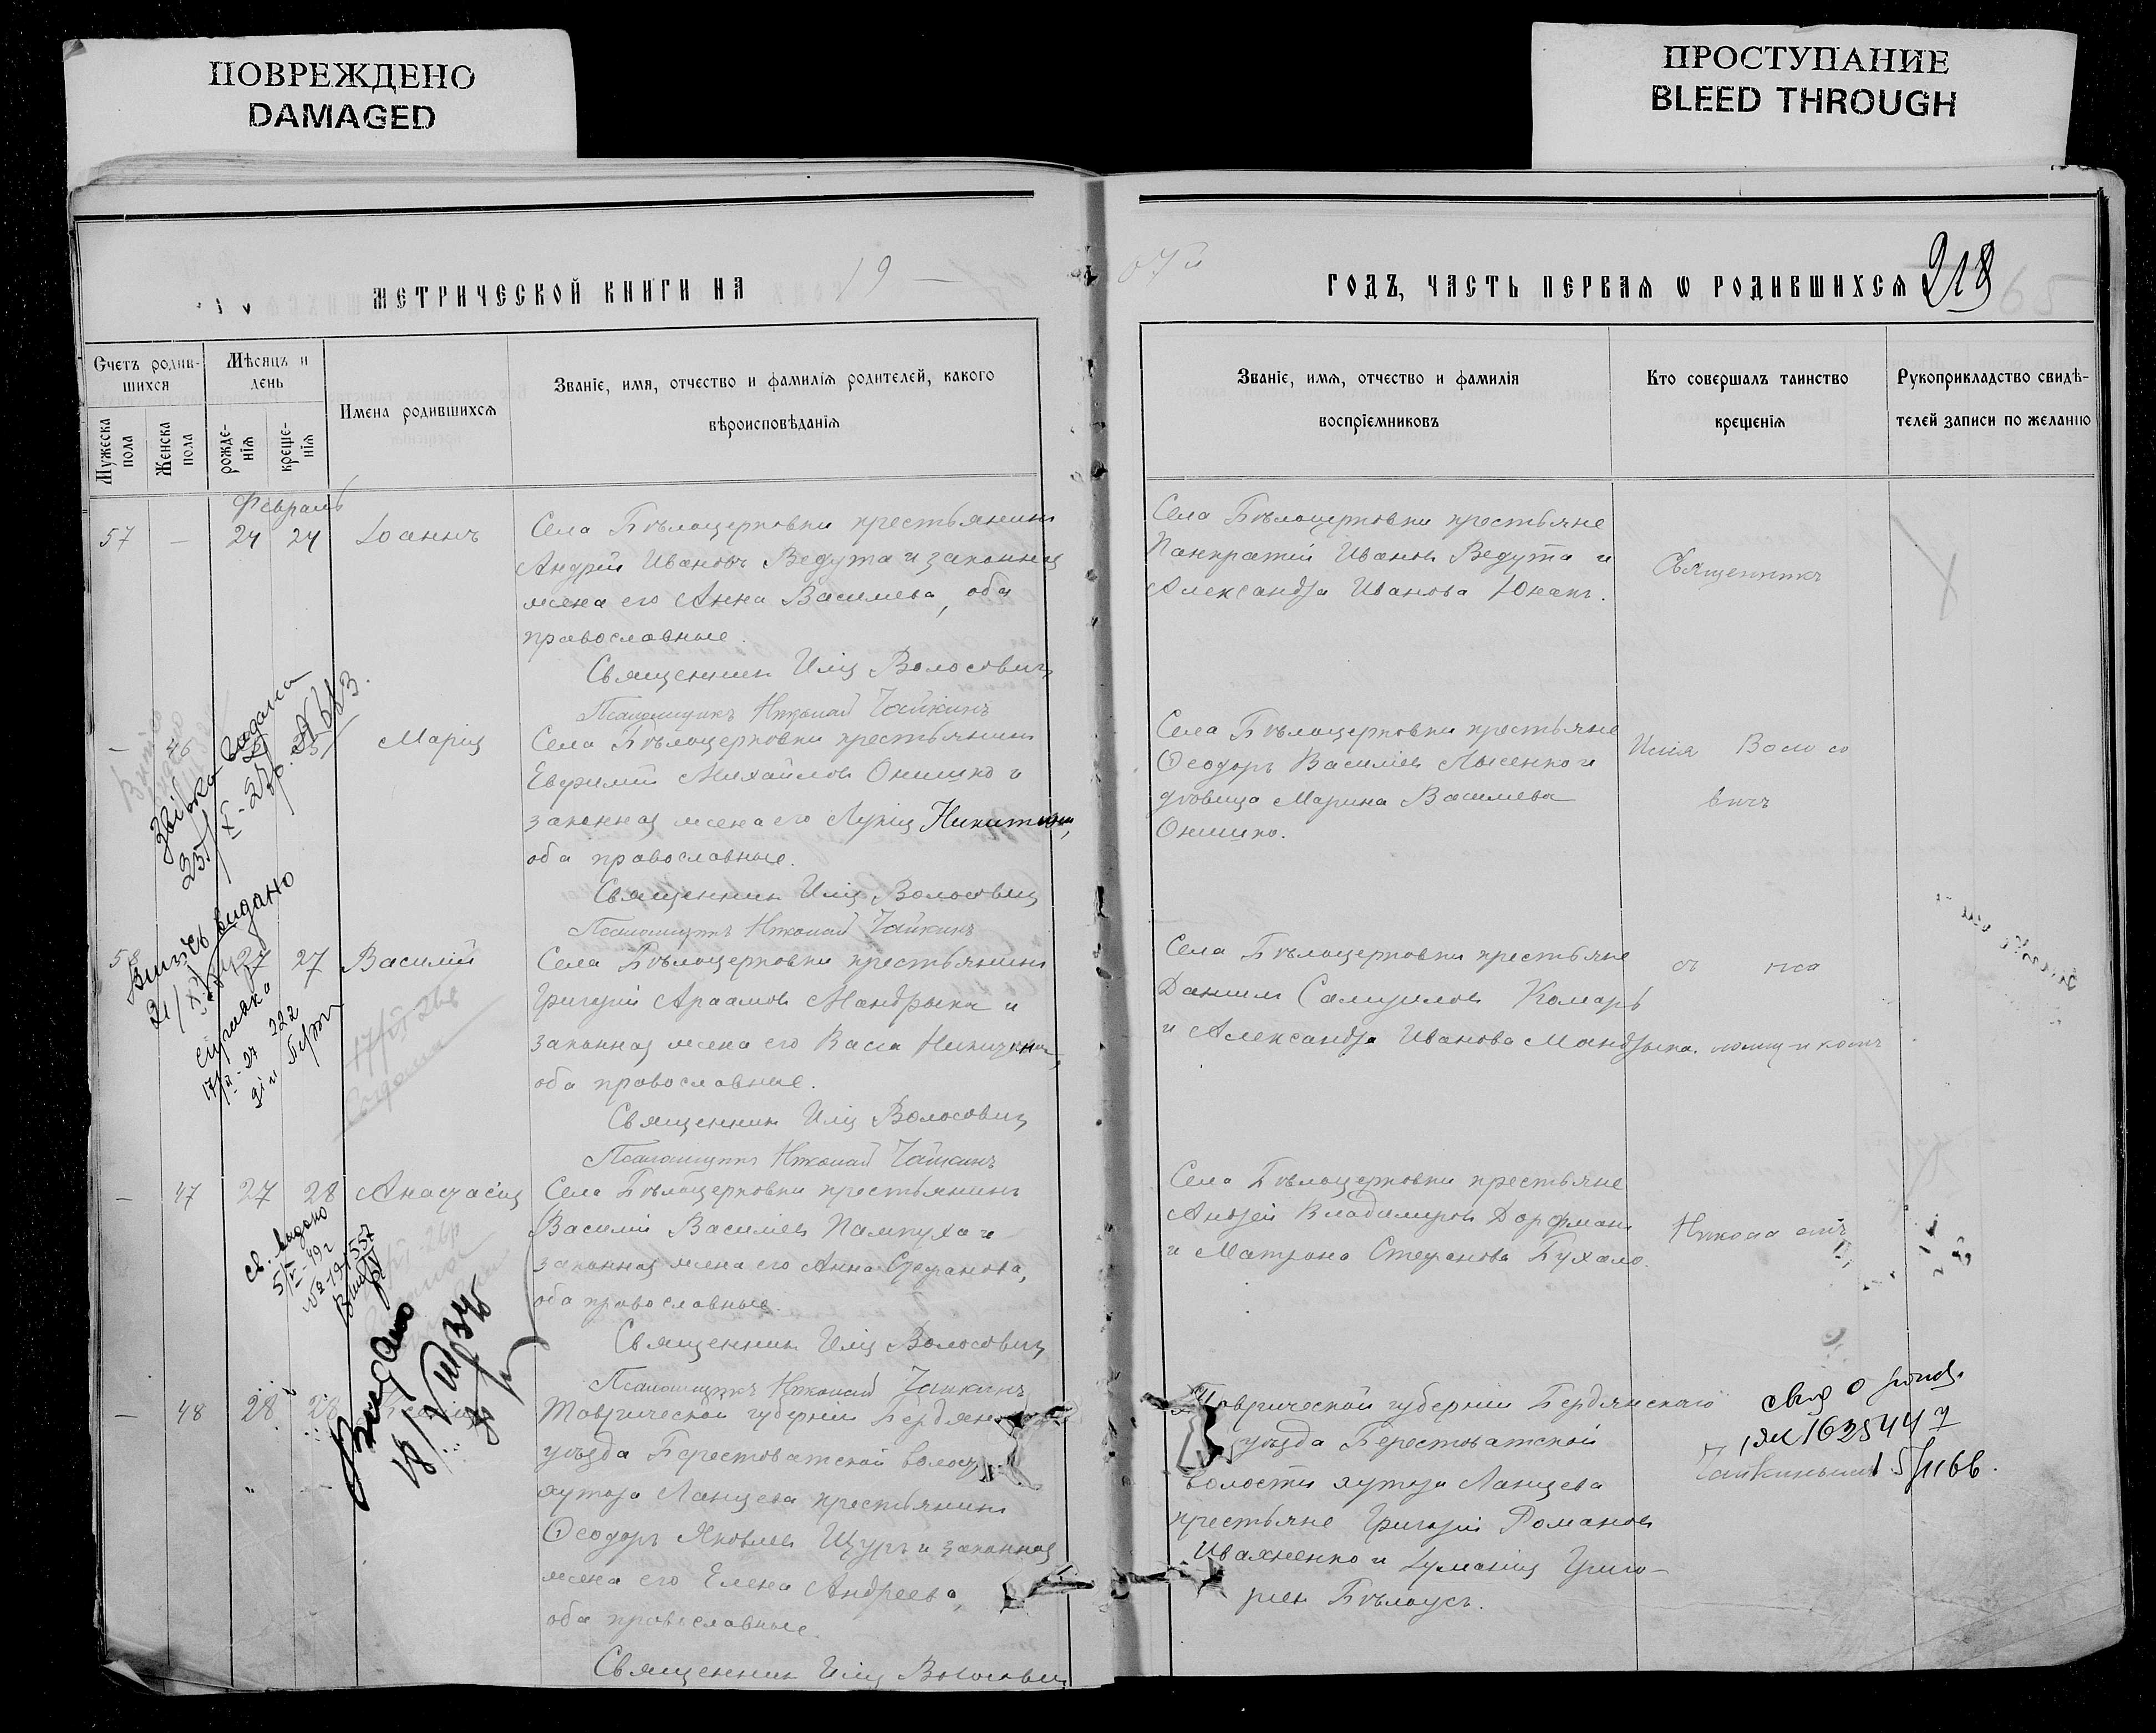 ПОВРЕЖДЕНО
DAMAGED
ПРОСТУПАНИЕ
BLEED THROUGH
МЕТРИЧЕСКОЙ КНИГИ НА 19
07й ГОДЪ, ЧАСТЬ ПЕРВАЯ Ѡ РОДИВШИХСЯ 218
Счетъ родив-
шихся
Мужеска пола
Женска пола
Мѣсяцъ и день
рожде-
нія
креще-
нія
Имена родившихся
Званіе, имя, отчество и фамилія родителей, какого
вѣроисповѣданія
Званіе, имя, отчество и фамилія
воспріемниковъ
Кто совершалъ таинство
крещенія
Рукоприкладство свидѣ-
телей записи по желанію
Февраль
57 — 24 24 Іоаннъ
Села Бѣлоцерковки крестьянинъ
Андрей Ивановъ Ведута и законная
жена его Анна Васильева, оба
православные.
Священникъ Илія Волосовичъ
Псаломщикъ Николай Чайкинъ
Села Бѣлоцерковки крестьяне
Панкратій Ивановъ Ведута и
Александра Иванова Юнакъ.
Священникъ
— 46 25 Марія
Села Бѣлоцерковки крестьянинъ
Евфимій Михайловъ Онишко и
законная жена его Лукія Никитина,
оба православные.
Священникъ Илія Волосовичъ
Псаломщикъ Николай Чайкинъ
Села Бѣлоцерковки крестьяне
Ѳеодоръ Василіевъ Лысенко и
дѣвица Марина Васильева
Онишко.
Илія Волосо
вичъ
58 27 27 Василій
Села Бѣлоцерковки крестьянинъ
Григорій Мандрыка и
законная жена его Васса
оба православные.
Священникъ Илія Волосовичъ
Псаломщикъ Николай Чайкинъ
Села Бѣлоцерковки крестьяне
Даниилъ Самуиловъ Комаръ
и Александра Иванова Мандрыка.
съ пса
ломщикомъ
— 47 27 28 Анастасія
Села Бѣлоцерковки крестьянинъ
Василій Василіевъ Пампуха и
законная жена его Анна Стефанова,
оба православные.
Священникъ Илія Волосовичъ
Псаломщикъ Николай Чайкинъ
Села Бѣлоцерковки крестьяне
Андрей Владимировъ Дорфманъ
и Матрона Стефанова Бухало.
Николаемъ
— 48 28 28
Таврической губерніи Бердянскаго
уѣзда Берестоватской волости
хутора Ланцева крестьянинъ
Ѳеодоръ Яковлевъ Щуръ и законная
жена его Елена Андреева,
оба православные.
Священникъ Илія Волосовичъ
Таврической губерніи Бердянскаго
уѣзда Берестоватской
волости хутора Ланцева
крестьяне Григорій Романовъ
Ивахненко и Григо-
рія Бѣлоусъ.
Чайкинымъ
Витісь видано
21/X
справка
видано
Видано
18/VIII 34